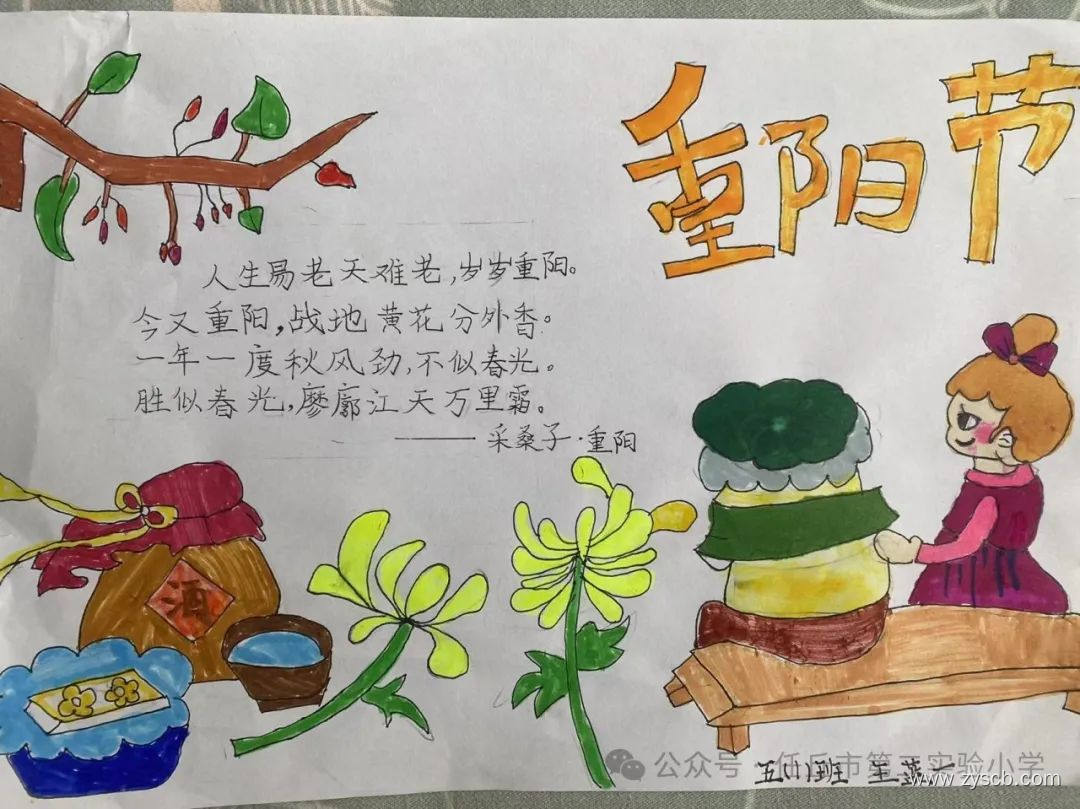 重阳节
人生易老天难老，岁岁重阳。
今又重阳，战地黄花分外香。
一年一度秋风劲，不似春光。
胜似春光，廖廓江天万里霜。
——采桑子·重阳
酒
公众号·任丘市第 实验小学
五(1)班 王
www.zyscb.com